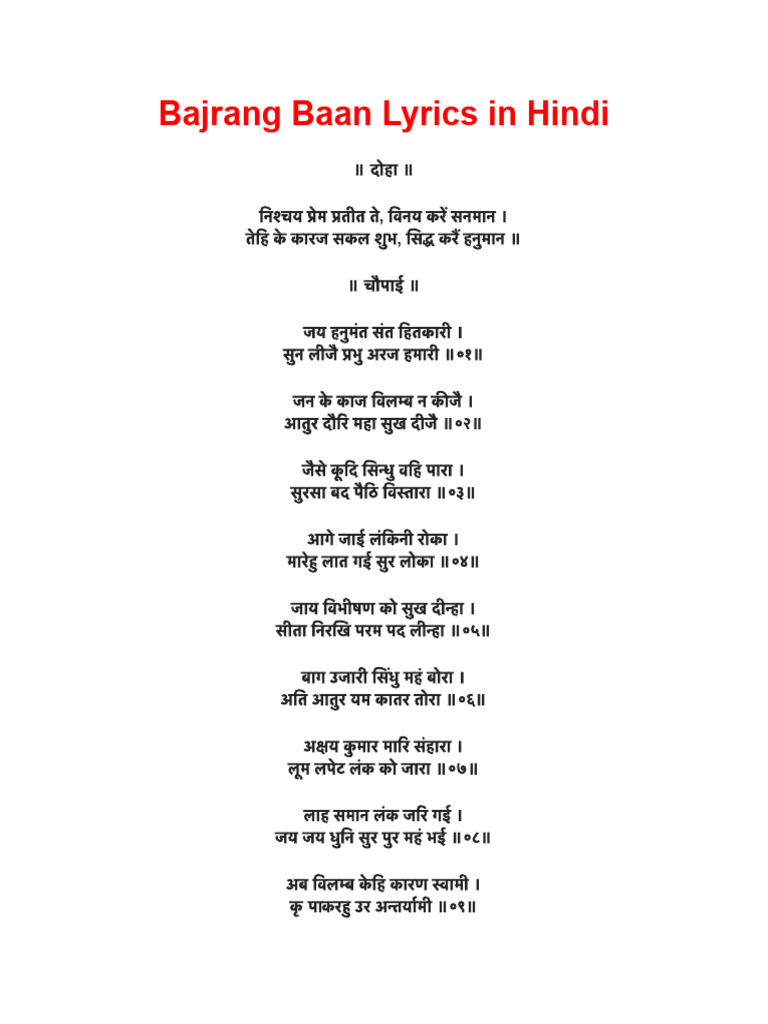 Bajrang Baan Lyrics in Hindi
॥ दोहा ॥
निश्चय प्रेम प्रतीत ते, विनय करें सनमान ।
तेहि के कारज सकल शुभ, सिद्ध करैं हनुमान ॥
॥ चौपाई ॥
जय हनुमंत संत हितकारी ।
सुन लीजै प्रभु अरज हमारी ॥०१॥
जन के काज विलम्ब न कीजै ।
आतुर दौरि महा सुख दीजै ॥०२॥
जैसे कूदि सिन्धु वहि पारा ।
सुरसा बद पैठि विस्तारा ॥०३॥
आगे जाई लंकिनी रोका ।
मारेहु लात गई सुर लोका ॥०४॥
जाय विभीषण को सुख दीन्हा ।
सीता निरखि परम पद लीन्हा ॥०५॥
बाग उजारी सिंधु महं बोरा ।
अति आतुर यम कातर तोरा ॥०६॥
अक्षय कुमार मारि संहारा ।
लूम लपेट लंक को जारा ॥०७॥
लाह समान लंक जरि गई ।
जय जय धुनि सुर पुर महं भई ॥०८॥
अब विलम्ब केहि कारण स्वामी ।
कृ पाकरहु उर अन्तर्यामी ॥०९॥